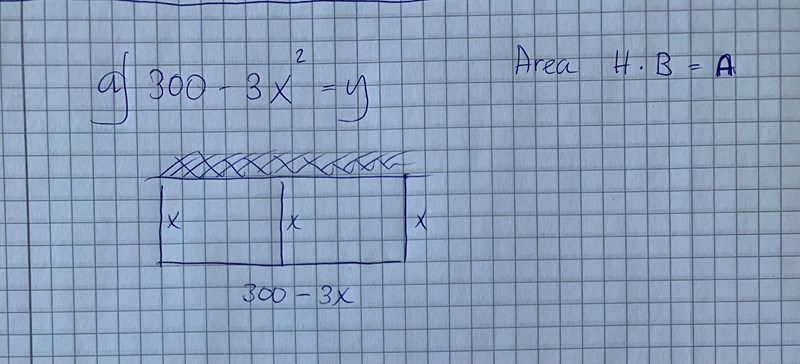 a) 300 - 3x² = y
Area H · B = A
x x x
300 - 3x